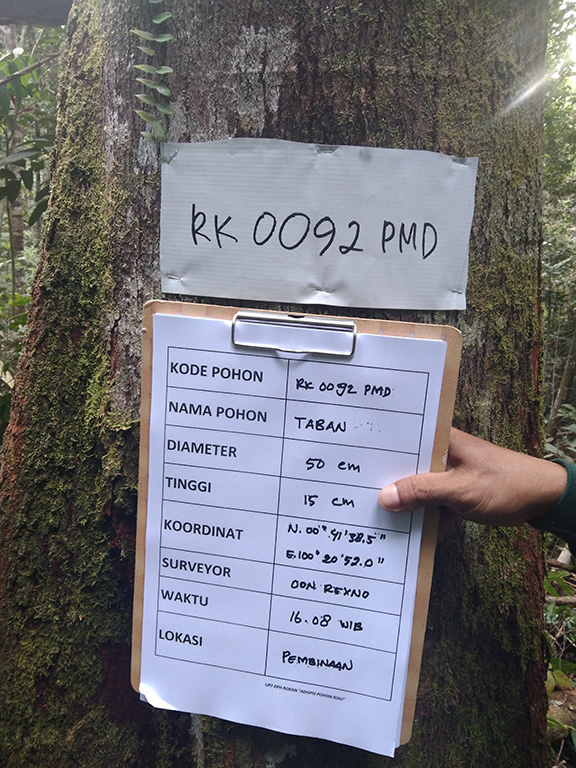 RK 0092 PMD
KODE POHON RK 0092 PMD
NAMA POHON TABAN
DIAMETER 50 cm
TINGGI 15 cm
KOORDINAT N. 00° 41' 38,5"
E. 100° 20' 52.0"
SURVEYOR DON REXNO
WAKTU 16.08 WIB
LOKASI PEMBINAAN
UPT KPH ROKAN "ADOPSI POHON RIAU"